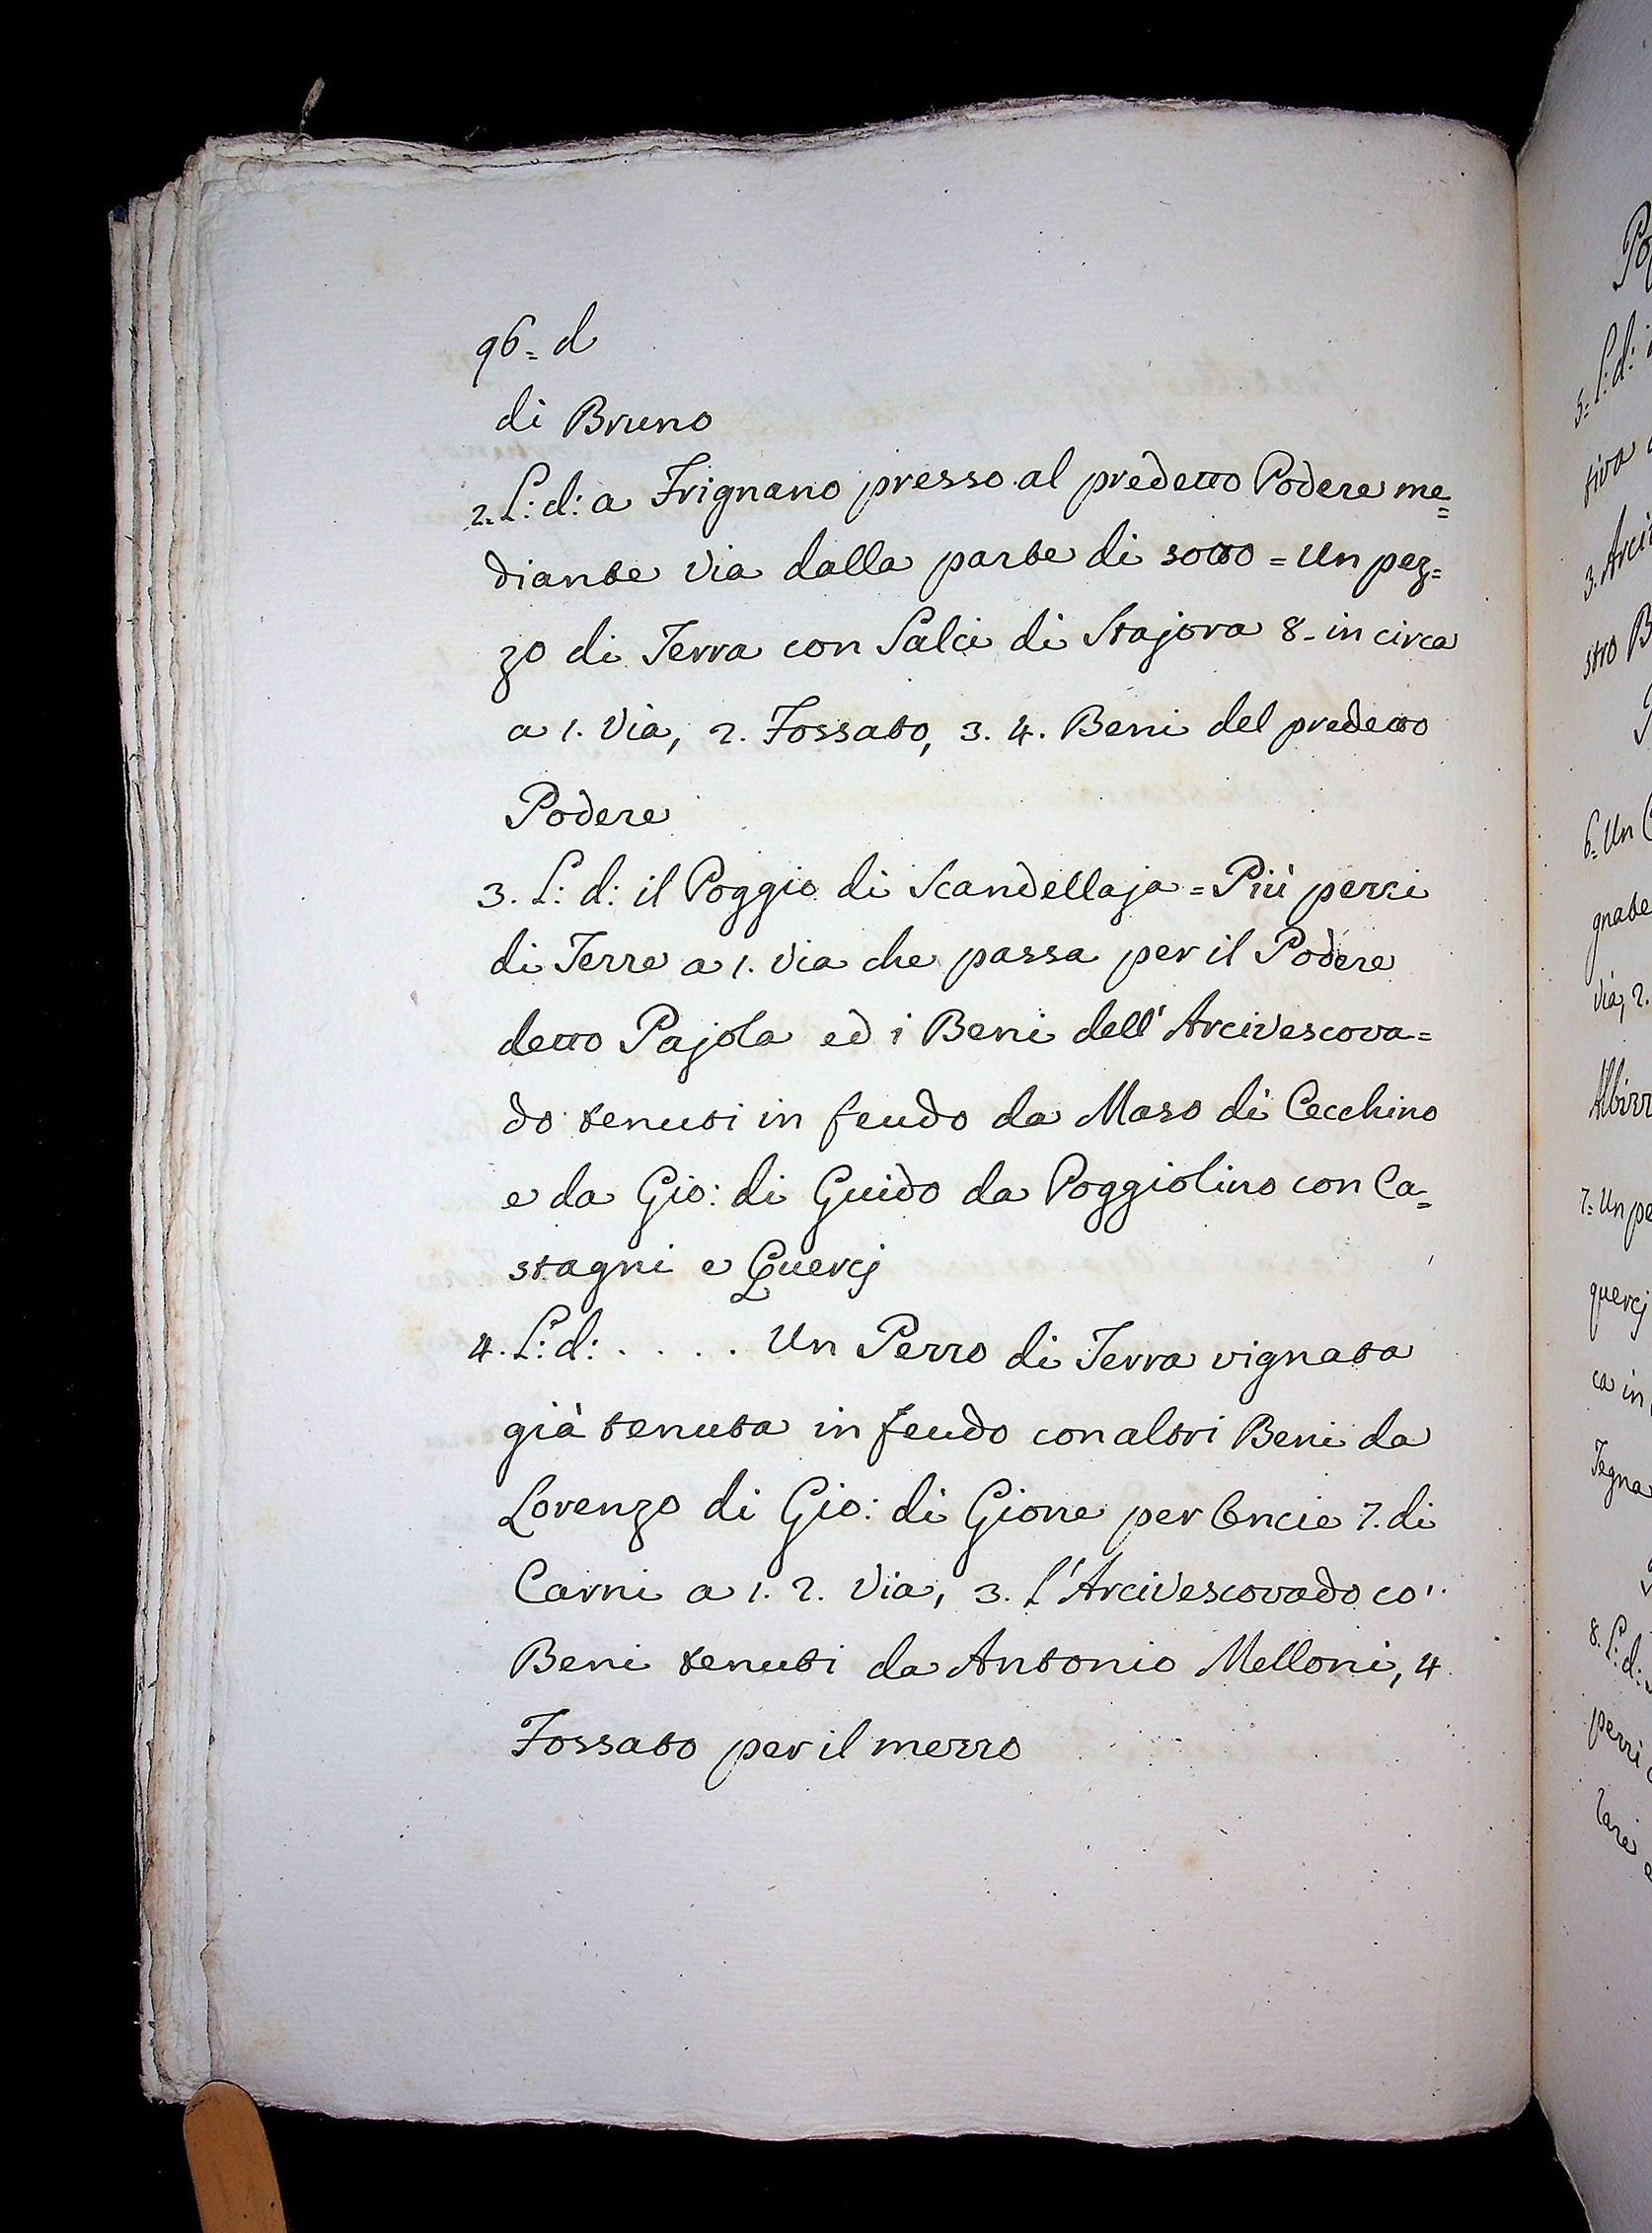 96= d
di Bruno
2. L: d: a Frignano presso al predetto Podere me=
diante via dalla parte di sotto = Un pez=
zo di Terra con Salci di Stajora 8- in circa
a 1. Via, 2. Fossato, 3. 4. Beni del predetto
Podere
3. L: d: il Poggio di Scandellaja = Più pezzi
di Terre a 1. Via che passa per il Podere
detto Pajola ed i Beni dell' Arcivescova=
do tenuti in feudo da Maso di Cecchino
e da Gio: di Guido da Poggiolino con Ca=
stagni e Quercj
4. L: d: . . . . Un Pezzo di Terra vignata
già tenuta in feudo con altri Beni da
Lorenzo di Gio: di Gione per Oncie 7. di
Carni a 1. 2. Via, 3. l'Arcivescovado co'
Beni tenuti da Antonio Melloni, 4
Fossato per il mezzo
5= L: d:
tiva
3. Arci
stro B
6= Un C
gnate
via, 2.
7= Un pe
quercj
ca in
Tegna
8. L: d:
pezzi